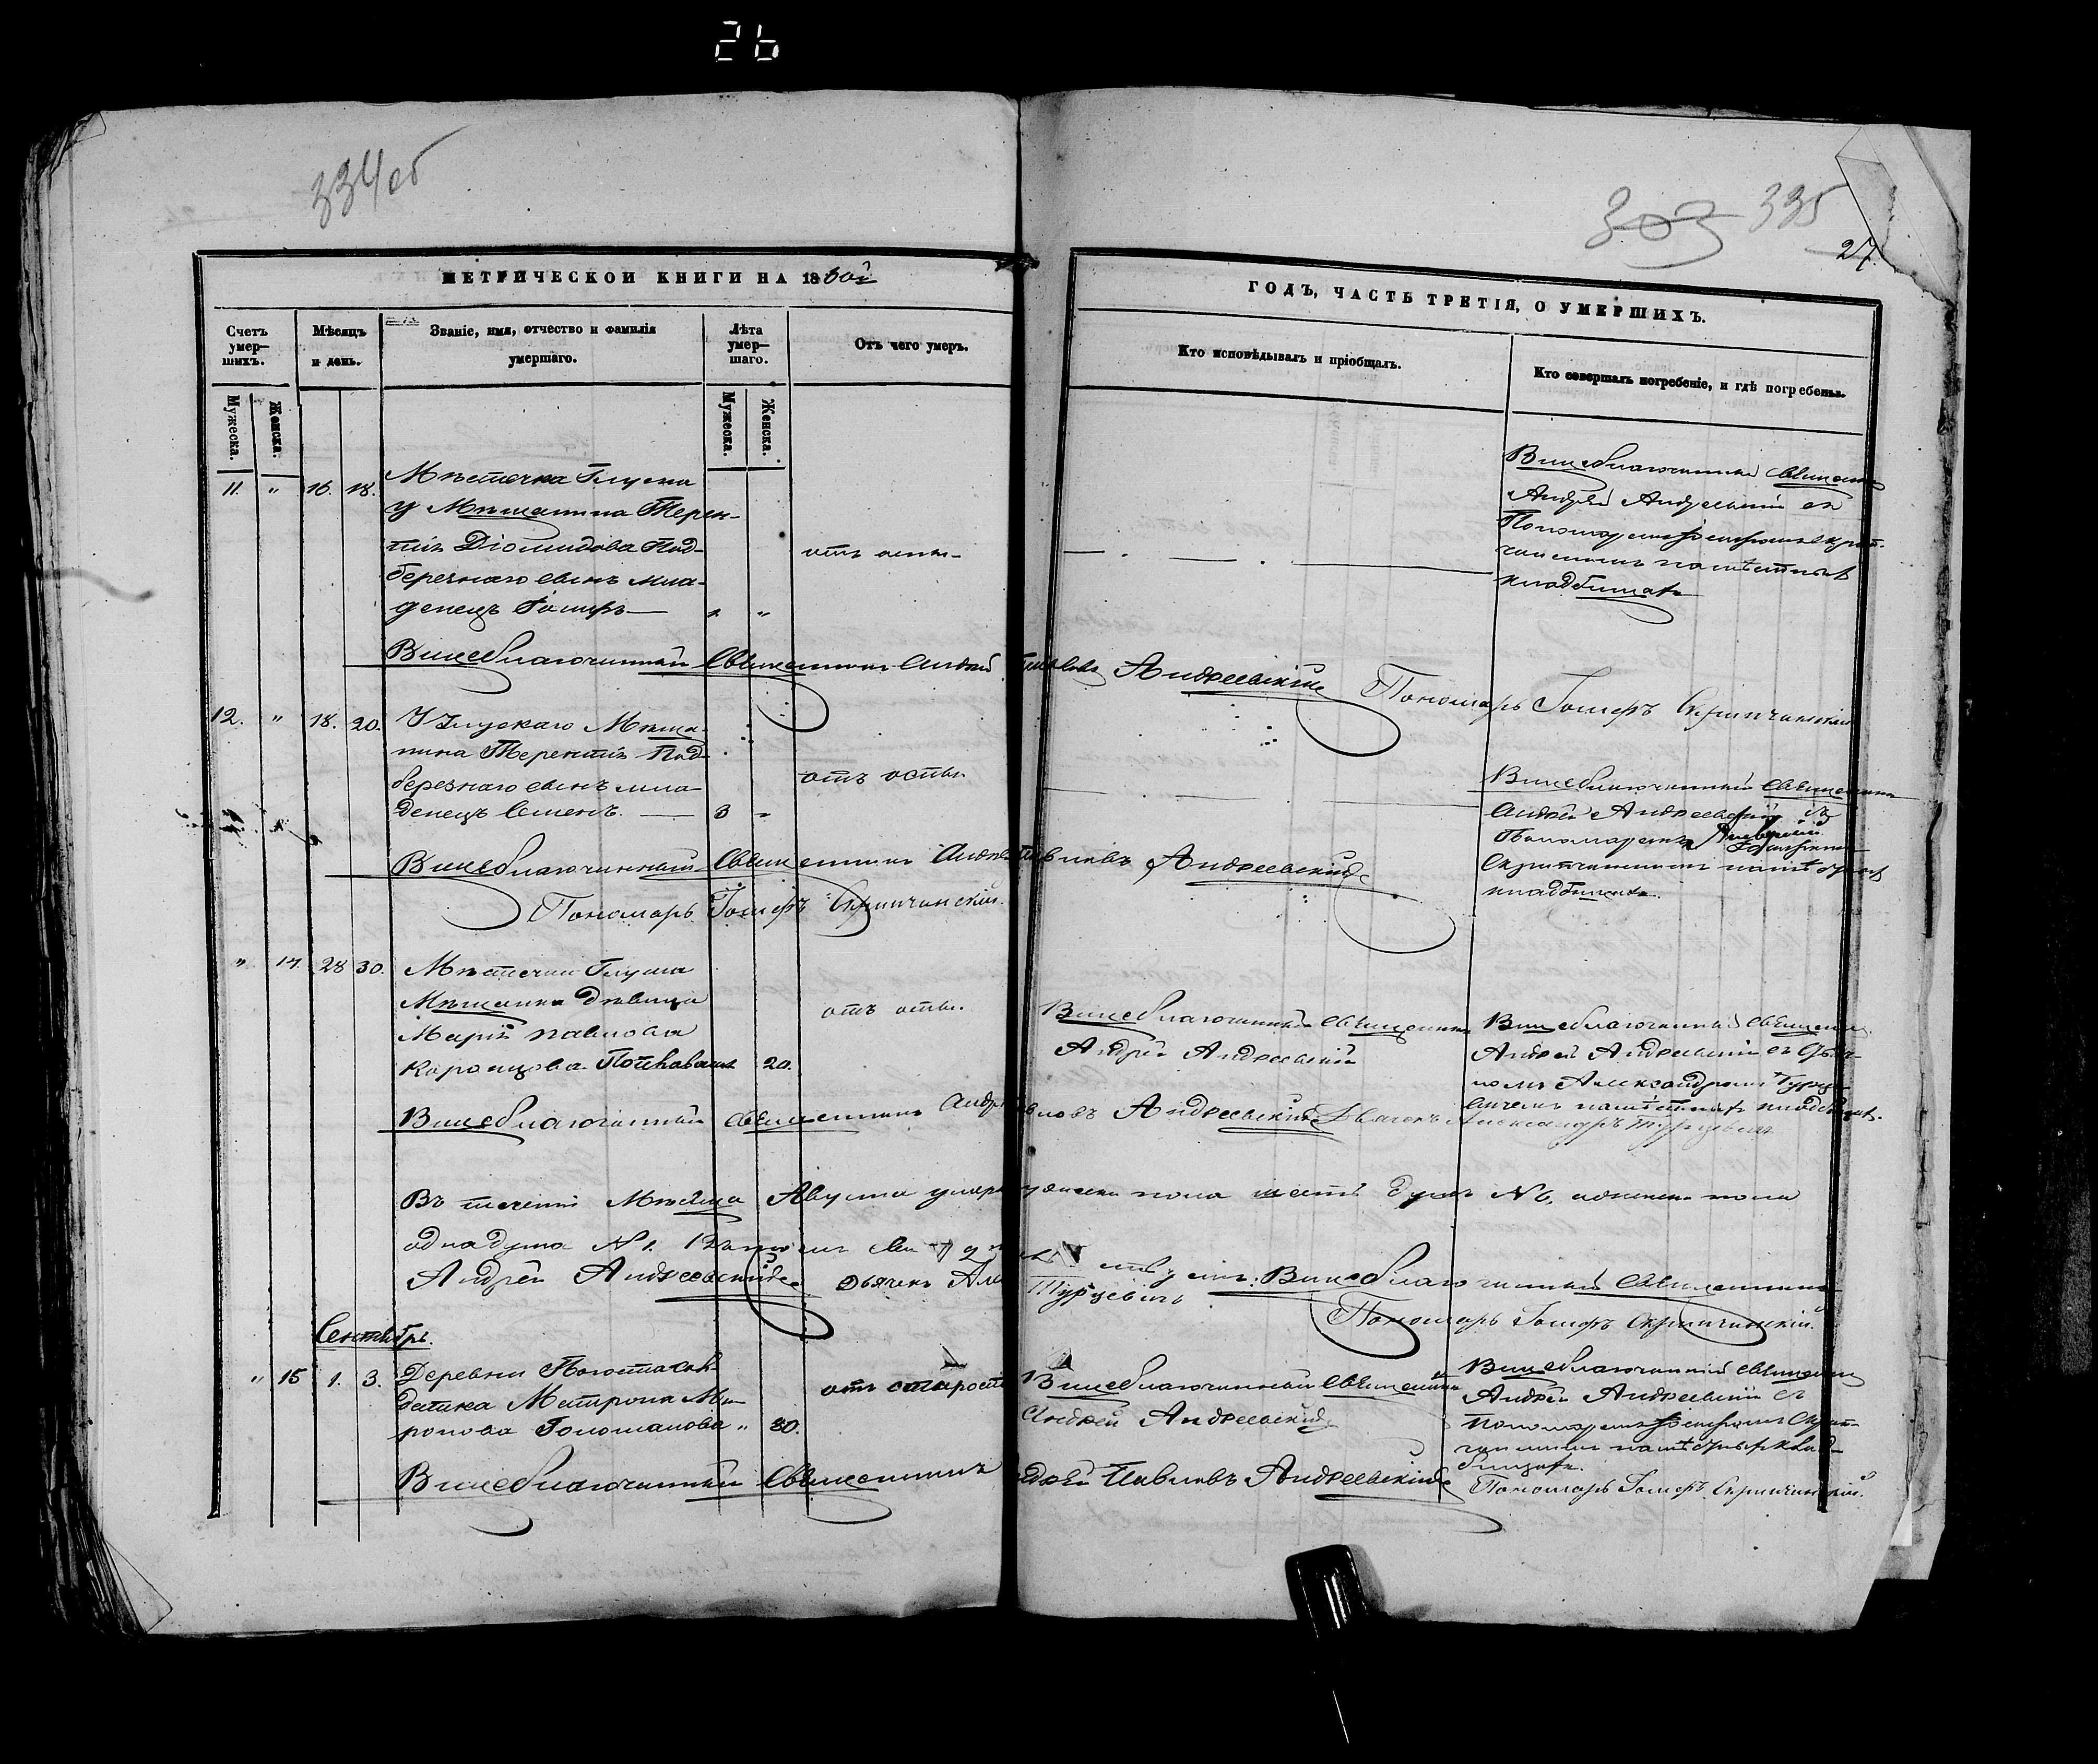 26
334об
303 335
27.
МЕТРИЧЕСКОЙ КНИГИ НА 1860й
ГОДЪ, ЧАСТЬ ТРЕТІЯ, О УМЕРШИХЪ.
Счетъ умер—шихъ.
Мѣсяцъ и день.
Званіе, имя, отчество и фамилія умершаго.
Лѣта умер—шаго.
Отъ чего умеръ.
Кто исповѣдывалъ и пріобщалъ.
Кто совершалъ погребеніе, и гдѣ погребены.
Мужеска.
Женска.
Мужеска.
Женска.
11. " 16. 18.
Мѣстечка Глуска
у Мѣщанина Терен-
тія Діомидова Под-
беречнаго сынъ мла-
денецъ Іосифъ — "
отъ оспы-
Вицеблагочинный Священник
Андрей Андреевскій съ
Пономаремъ Іосифомъ Скрип-
чинскимъ на мѣстныхъ
кладбищахъ
Вицеблагочинный Священникъ Андрей Павловъ Андреевскій
Пономарь Іосифъ Скрипчинскій
12. " 18. 20.
У Глускаго Мѣща-
нина Терентія Под-
беречнаго сынъ мла-
денецъ Семенъ. — 3 "
отъ оспы.
Вицеблагочинный Священникъ
Андрей Андреевскій съ
Пономаремъ Іосифомъ
Скрипчинскимъ на
кладбищахъ.
Вицеблагочинный Священникъ Андрей Павловъ Андреевскій
Пономарь Іосифъ Скрипчинскій.
" 14. 28 30.
Мѣстечка Глуска
Мѣщанка дѣвица
Марія Павлова
20.
отъ оспы.
Вицеблагочинный Священникъ
Андрей Андреевскій
Вицеблагочинный Священ.
Андрей Андреевскій съ Дьяч-
комъ Александромъ Турце-
вичемъ на мѣстныхъ кладбищахъ.
Вицеблагочинный Священникъ Андрей Павловъ Андреевскій Дьячекъ Александръ Турцевичъ
Въ теченіи Мѣсяца Августа умерло мужеска пола шесть душъ №6, а женска пола
одна душа №1.
Вицеблагочинный Священникъ
Андрей Андреевскій Дьячекъ Але Турцевичъ
Пономарь Іосифъ Скрипчинскій.
Сентябрь.
" 15 1. 3.
Деревни
Матрона Ми-
ронова " 80.
отъ старости
Вицеблагочинный Священникъ
Андрей Андреевскій
Вицеблагочинный Священник
Андрей Андреевскій съ
Пономаремъ Іосифомъ Скрип-
чинскимъ на клад-
бищахъ.
Вицеблагочинный Священникъ Андрей Павловъ Андреевскій
Пономарь Іосифъ Скрипчинскій.